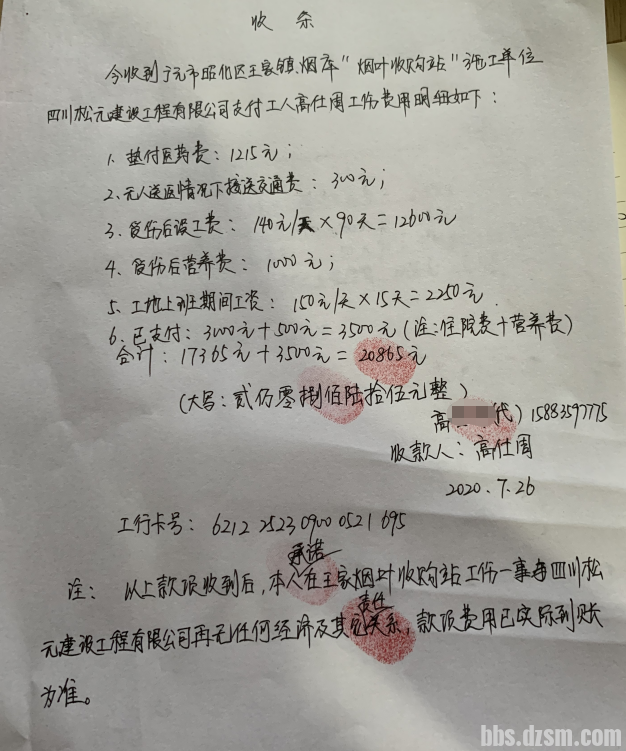 收条
今收到广元市昭化区王家镇,烟库"烟叶收购站"施工单位
四川松元建设工程有限公司支付工人高仕周工伤费用明细如下：
1. 垫付医药费：1215元；
2. 无人送返情况下接送交通费：300元；
3. 负伤后误工费：140元/天×90天=12600元
4. 负伤后营养费：1000元；
5. 工地上班期间工资：150元/天×15天=2250元.
6. 已支付：3000元+500元=3500元(注:住院费+营养费)
合计：17365元+3500元=20865元
(大写：贰仟零捌佰陆拾伍元整)
高 代) 15883597775
收款人：高仕周
2020.7.26
工行卡号：6212 2523 0900 0521 695
承诺
注：以上款项收到后,本人在王家烟叶收购站工伤一事与四川松
责任
元建设工程有限公司再无任何经济及其它关系,款项费用已实际到账
为准。
bbs.dzsm.com